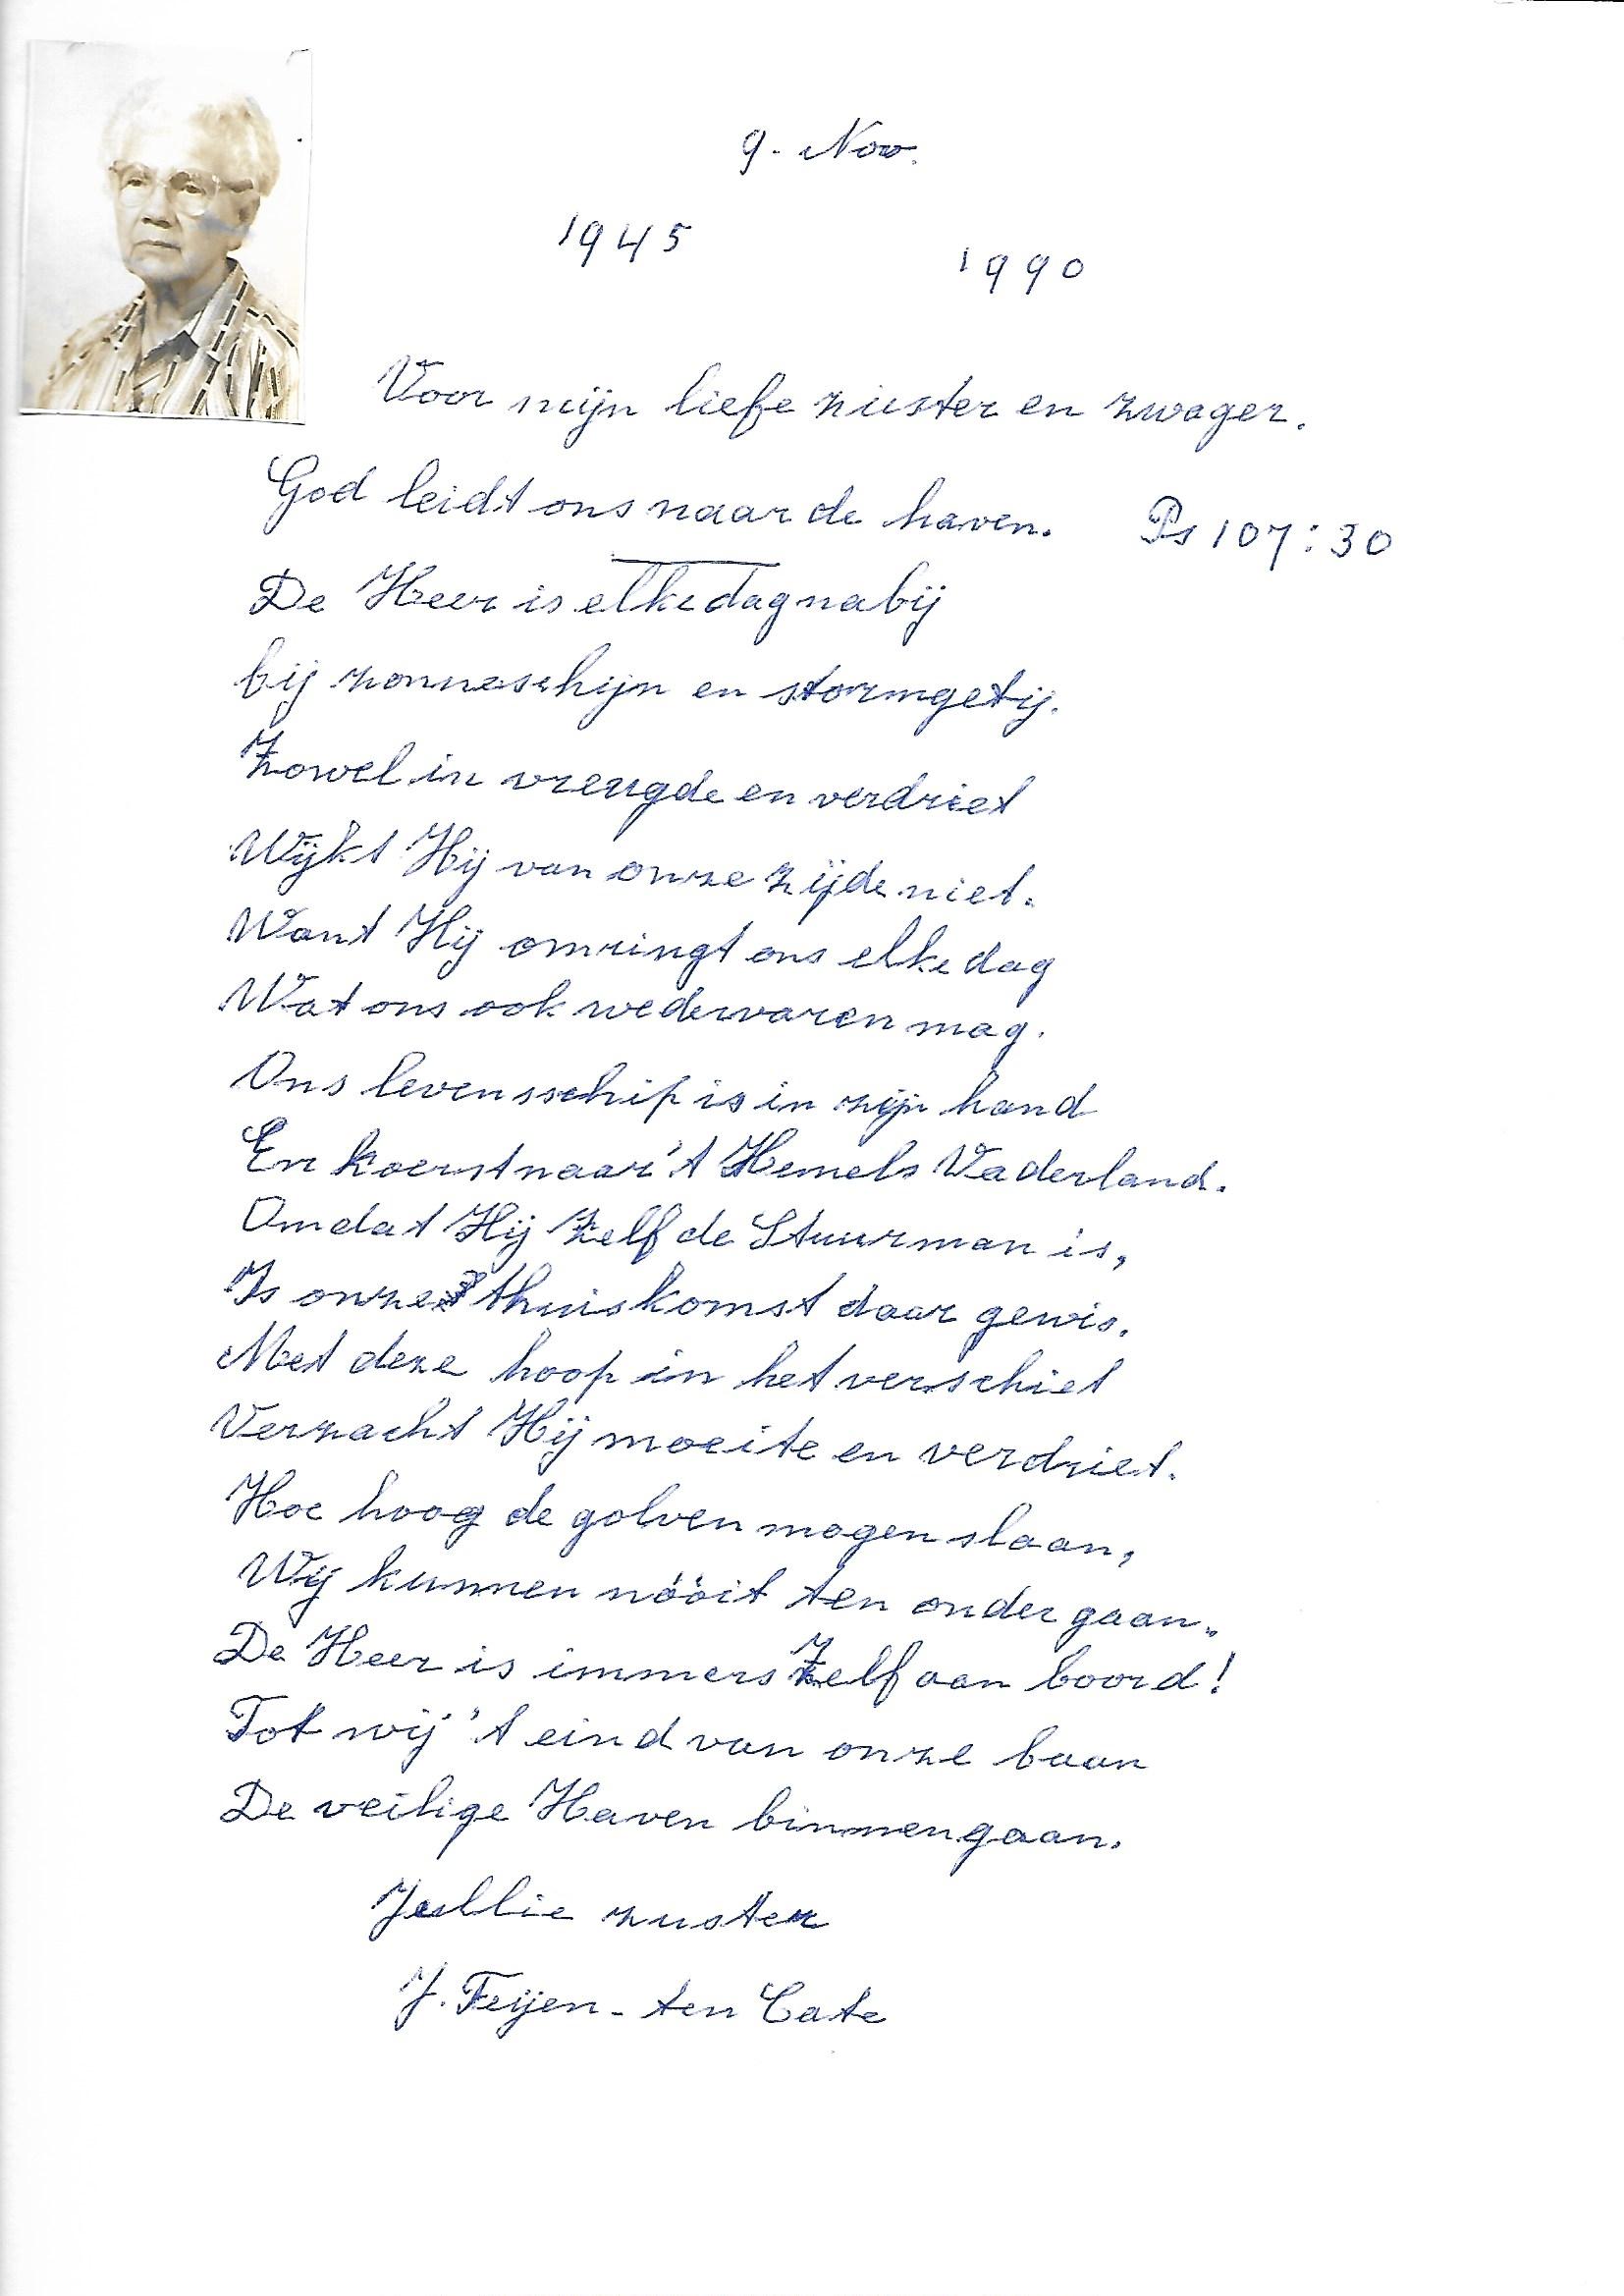 9. Nov.
1945
1990
Voor mijn liefe zuster en zwager.
God leidt ons naar de haven. Ps 107:30
De Heer is elke dag nabij
bij zonneschijn en stormgetij.
Zowel in vreugde en verdriet
Wijkt Hij van onze zijde niet.
Want Hij omringt ons elke dag
Wat ons ook wedervaren mag.
Ons levensschip is in zijn hand
En koerst naar 't Hemels Vaderland.
Omdat Hij Zelf de Stuurman is,
Is onze thuiskomst daar gewis.
Met deze hoop in het verschiet
Verzacht Hij moeite en verdriet.
Hoe hoog de golven mogen slaan,
Wij kunnen nóóit ten onder gaan.
De Heer is immers Zelf aan boord!
Tot wij 't eind van onze baan
De veilige Haven binnengaan.
Jullie zuster
J. Feijen - ten Cate